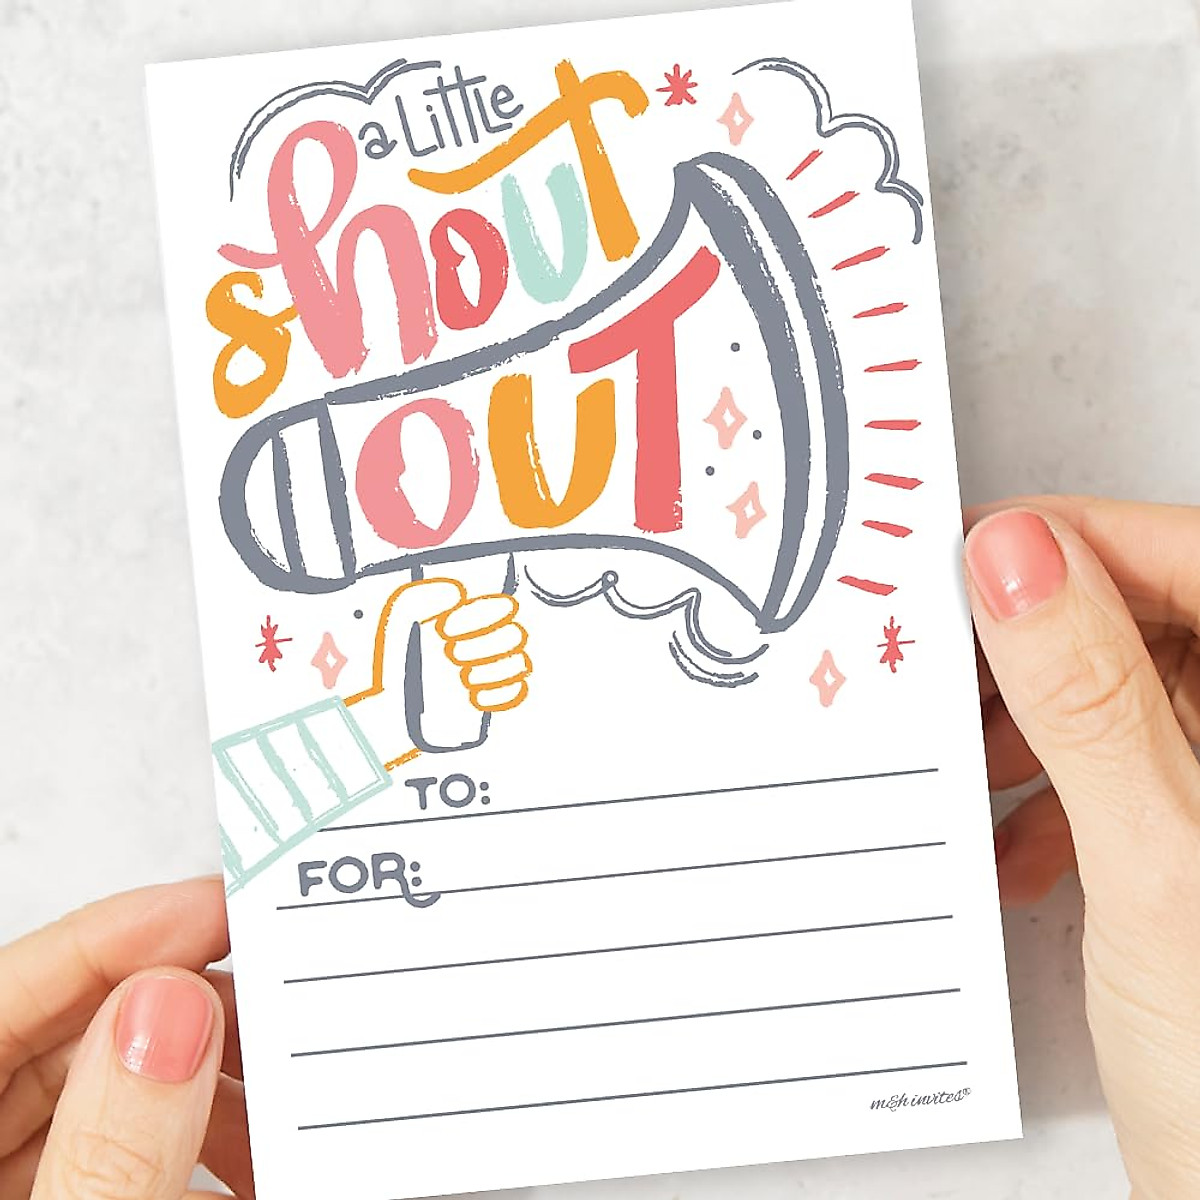 a Little
shout
OUT
TO:
FOR:
m&h invites®